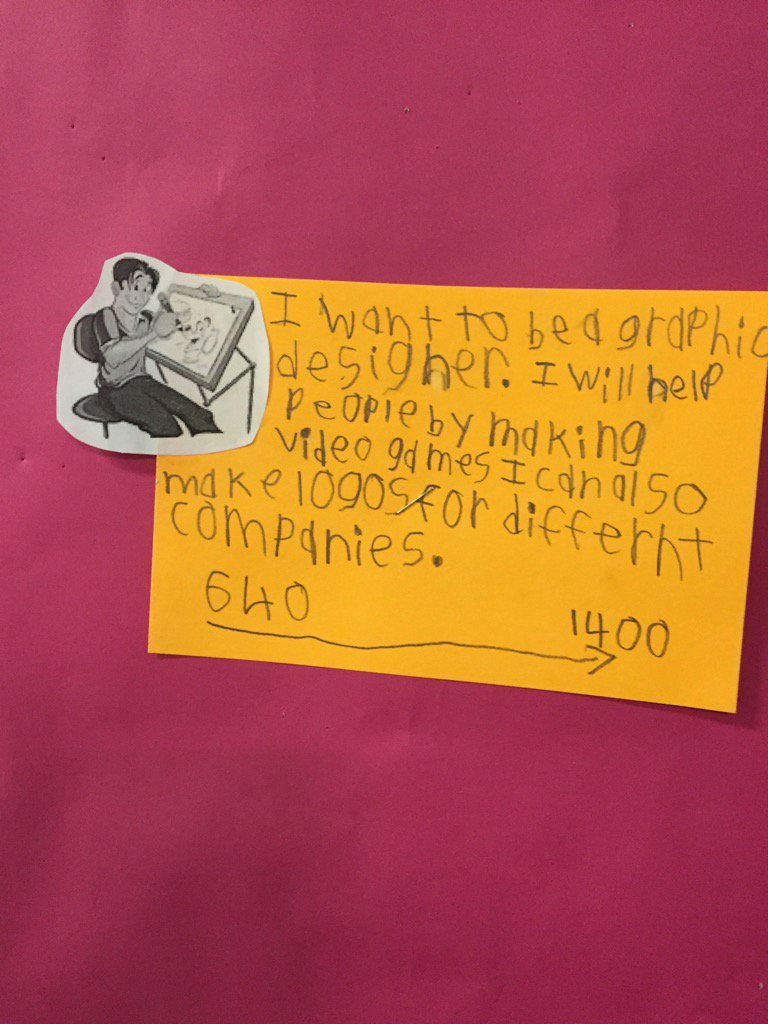 I want to be a graphic
designer. I will help
people by making
video games I can also
make logos for differnt
companies.
640 1400